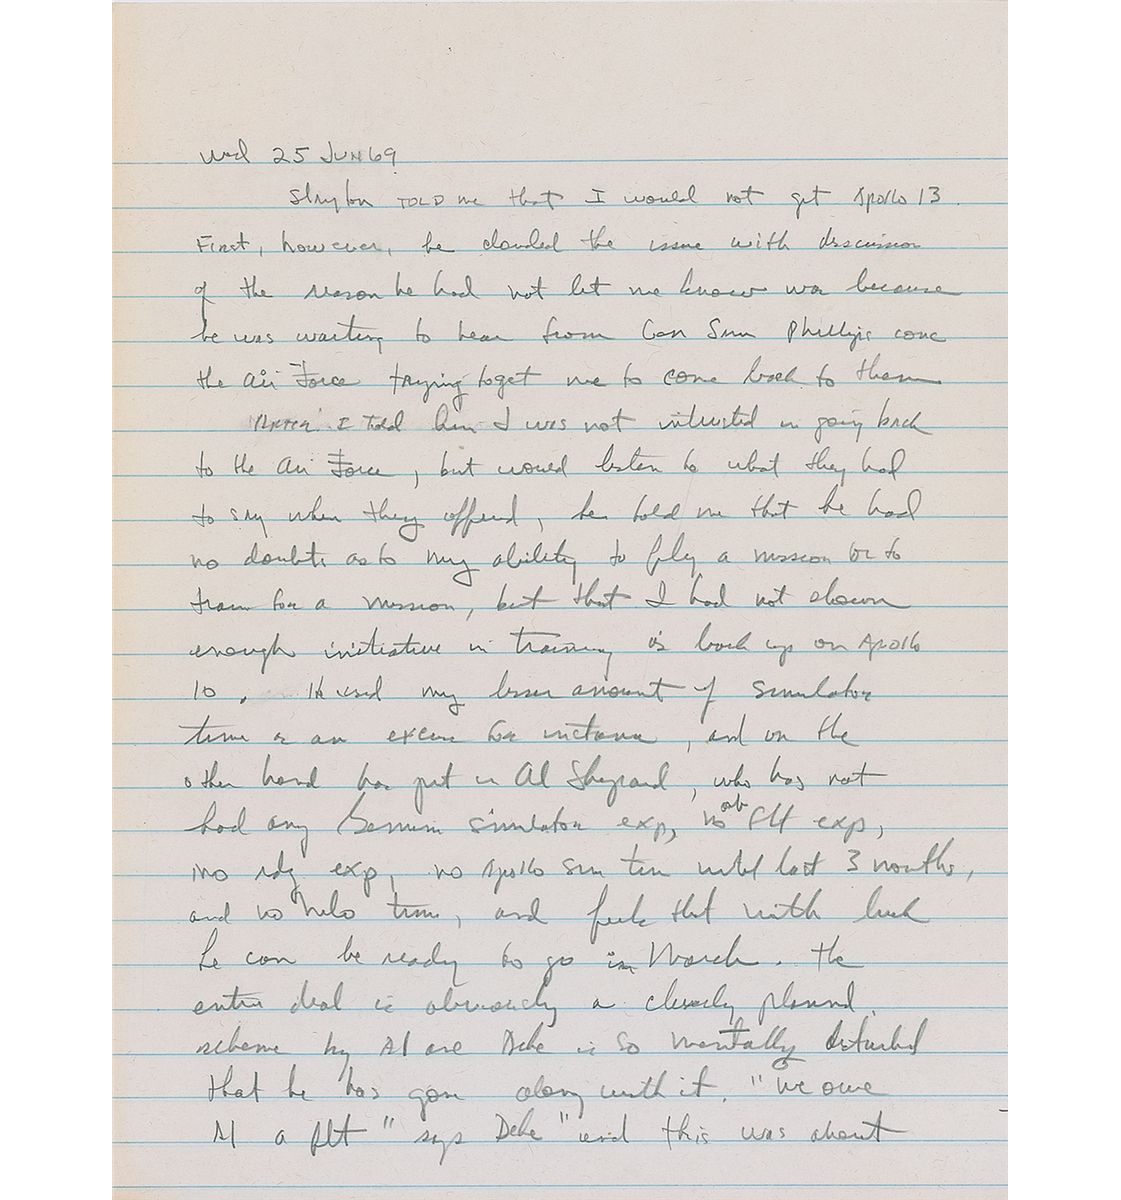 Wed 25 JUN 69
Slayton TOLD me that I would not get Apollo 13.
First, however, he clouded the issue with discussion
of the reason he had not let me know was because
he was waiting to hear from Gen Sam Phillips conc
the Air Force trying to get me to come back to them
After I Told him I was not interested in going back
to the Air Force, but would listen to what they had
to say when they offered, he told me that he had
no doubts as to my ability to fly a mission or to
train for a mission, but that I had not shown
enough initiative in training as back up on Apollo
10. He used my lesser amount of simulator
time as an excuse for instance, and on the
other hand has put in Al Shepard, who has not
had any Gemini simulator exp, no orb Flt exp,
no rdz exp, no Apollo sim time until last 3 months,
and no helo time, and feels that with luck
he can be ready to go in March. The
entire deal is obviously a cleverly planned
scheme by Al and Deke is so mentally disturbed
that he has gone along with it. "We owe
Al a flt" says Deke "and this was about